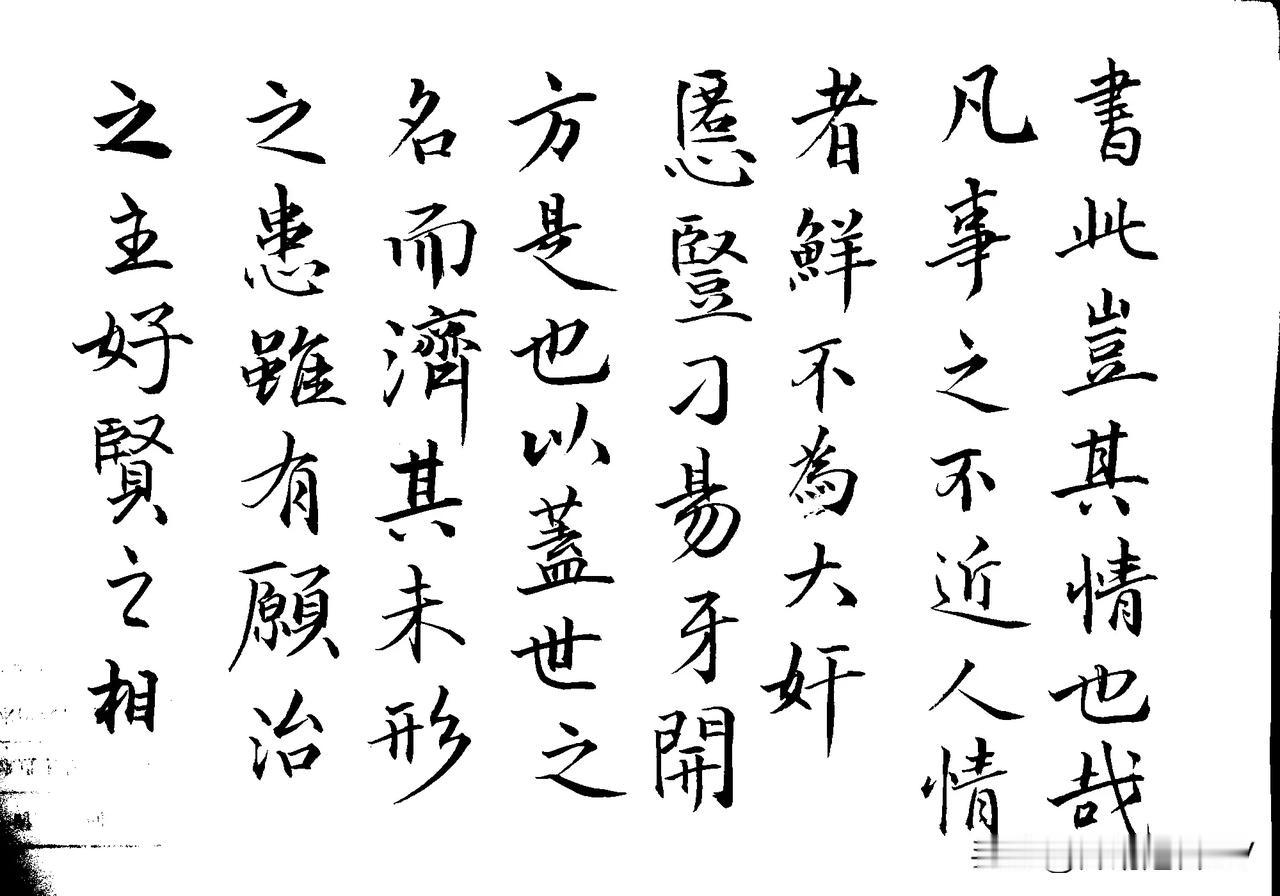 書此豈其情也哉
凡事之不近人情
者鮮不為大奸
慝豎刁易牙開
方是也以蓋世之
名而濟其未形
之患雖有願治
之主好賢之相